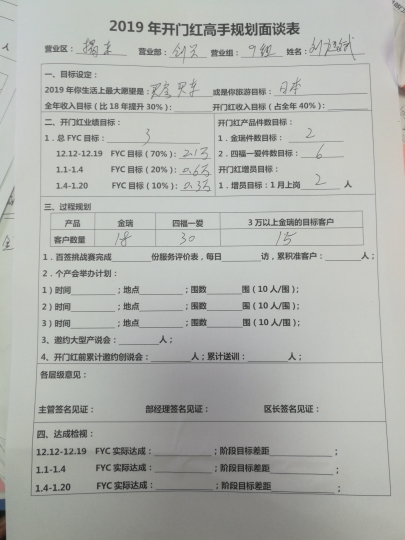 2019 年开门红高手规划面谈表
营业区： 营业部： 营业组：9组 姓名：
一、目标设定：
2019 年你生活上最大愿望是：买房买车 或是你旅游目标：日本
全年收入目标（比 18 年提升 30%）： 开门红收入目标（占全年 40%）：
二、开门红业绩目标： 开门红产品件数目标：
1．总 FYC 目标：3 1．金瑞件数目标：2
12.12-12.19 FYC 目标（70%）：2.1万 2．四福一爱件数目标：6
1.1-1.4 FYC 目标（20%）：0.6万 开门红增员目标：
1.4-1.20 FYC 目标（10%）：0.3万 1．增员目标：1 月上岗 2 人
三、过程规划
产品 金瑞 四福一爱 3 万以上金瑞的目标客户
客户数量 18 30 15
1．百签挑战赛完成 份服务评价表，每日 访，累积准客户： 人；
2．个产会举办计划：
1）时间 ；地点 ；围数 围（10 人/围）；
2）时间 ；地点 ；围数 围（10 人/围）；
3）时间 ；地点 ；围数 围（10 人/围）；
3、邀约大型产说会： 人；
4、开门红前累计邀约创说会： 人；累计送训： 人；
各层级意见：
主管签名见证： 部经理签名见证： 区长签名见证：
四、达成检视：
12.12-12.19 FYC 实际达成： ；阶段目标差距 ；
1.1-1.4 FYC 实际达成： ；阶段目标差距 ；
1.4-1.20 FYC 实际达成： ；阶段目标差距 ；